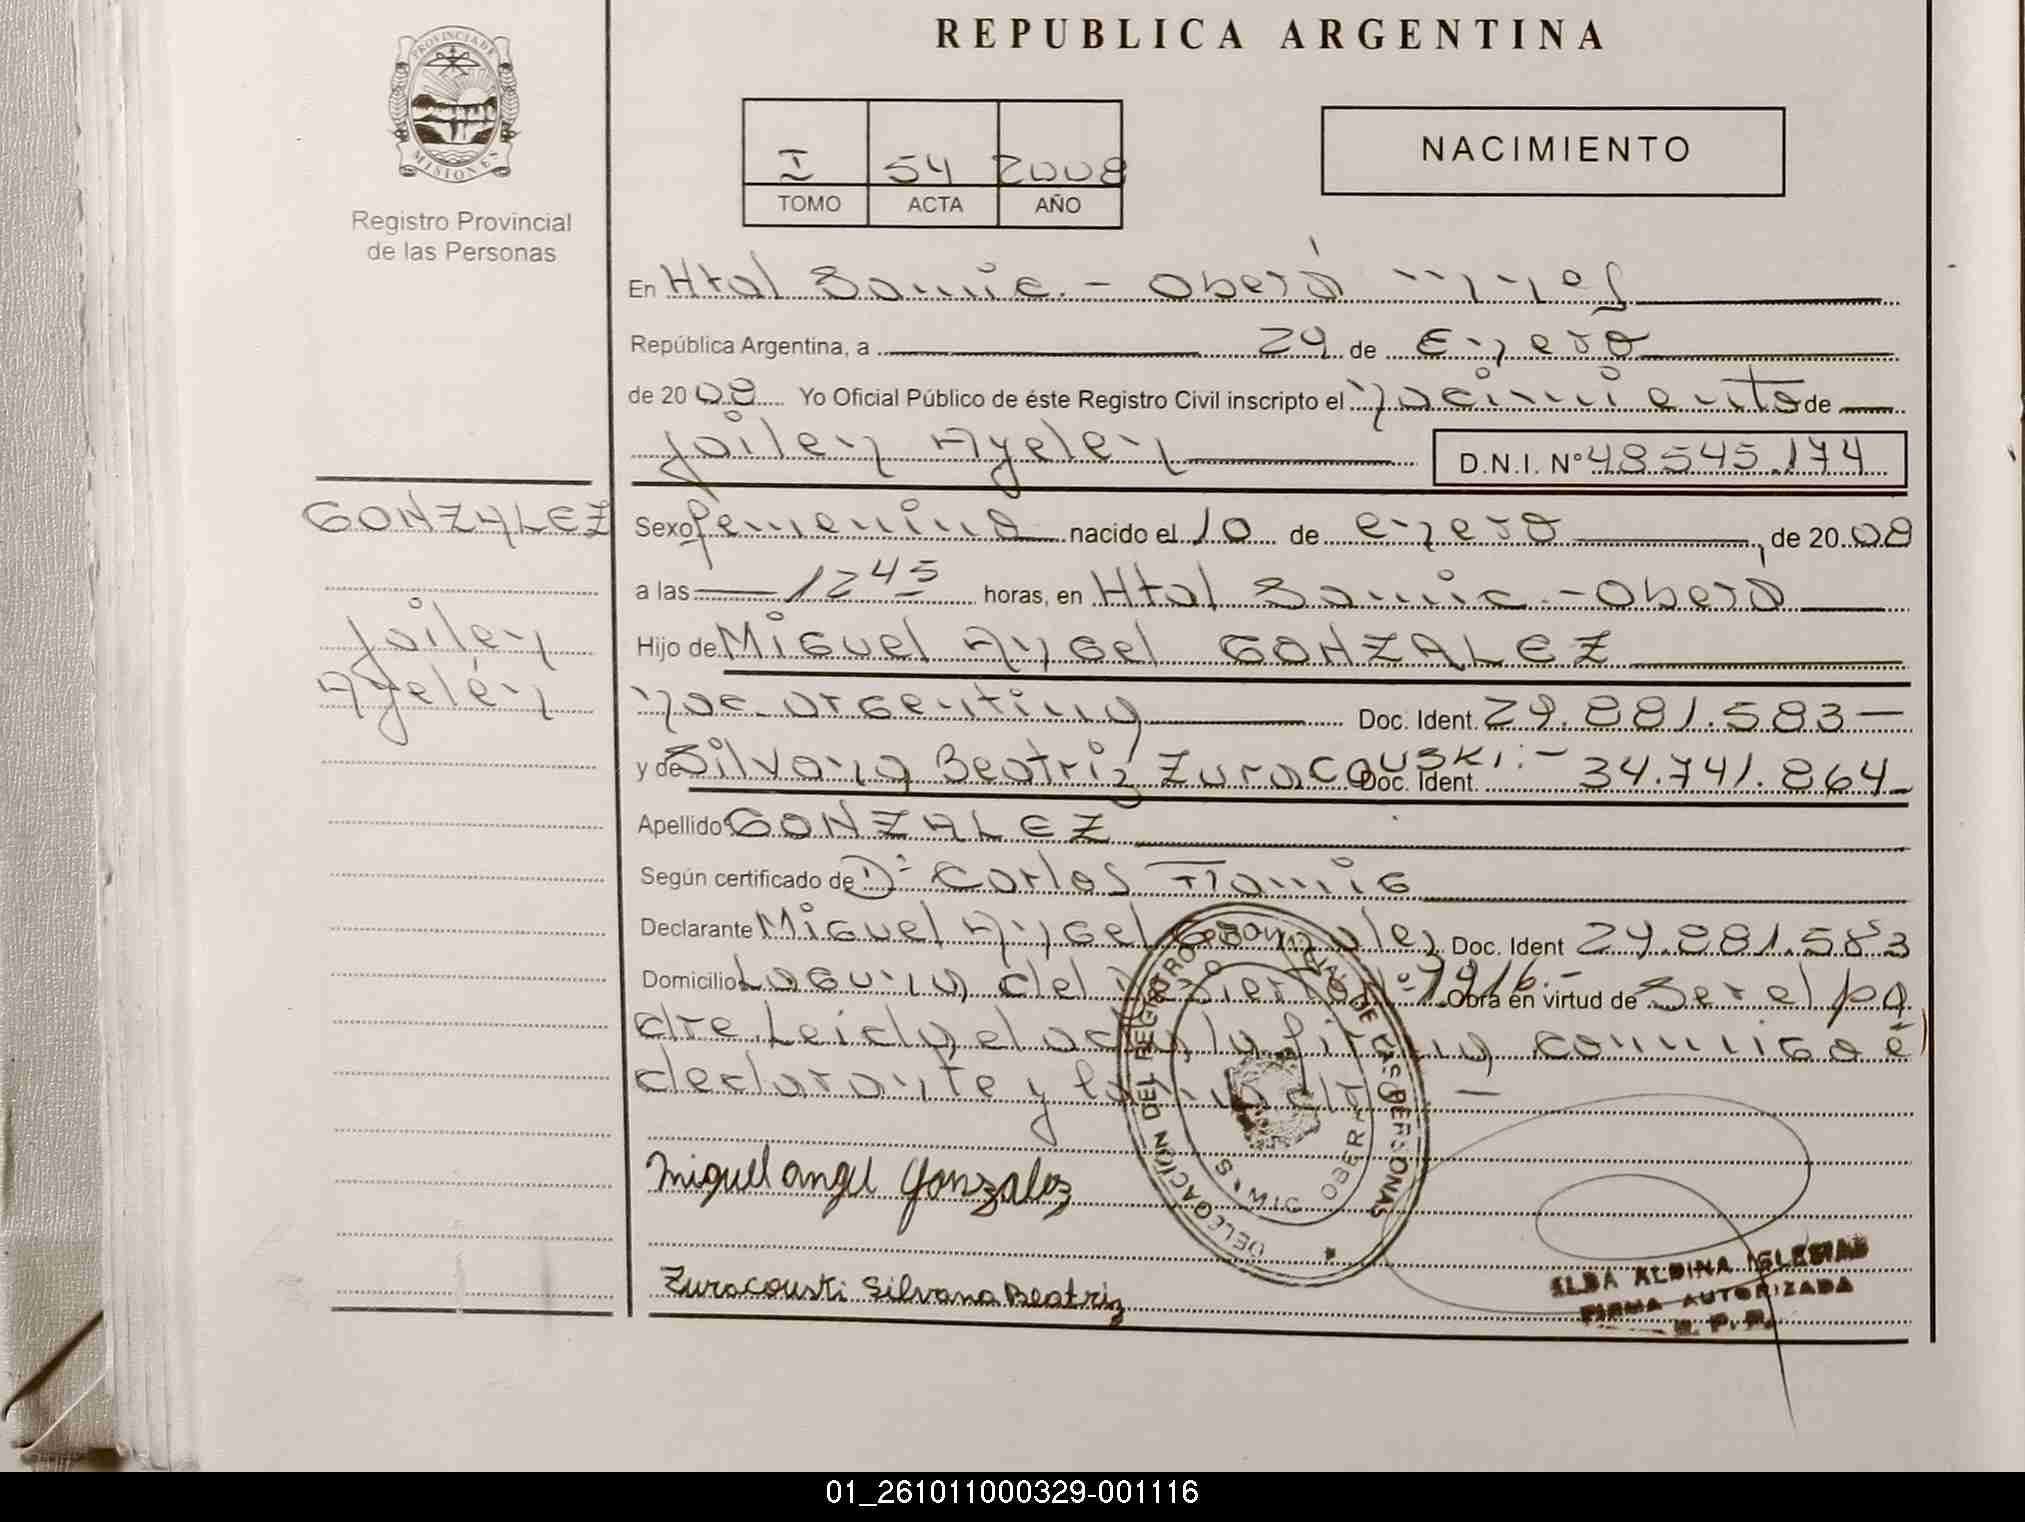 REPUBLICA ARGENTINA
PROVINCIA DE MISIONES
Registro Provincial
de las Personas
I 54 2008
TOMO ACTA AÑO
NACIMIENTO
En Htal Samic.- Oberá
República Argentina, a 29 de Enero
de 2008 Yo Oficial Público de éste Registro Civil inscripto el nacimiento de
Joilen Ayelen D.N.I. Nº 48.545.174
GONZALEZ
Joilen
Ayelén
Sexo femenino nacido el 10 de enero, de 2008
a las 12 45 horas, en Htal Samic.-Oberá
Hijo de Miguel Angel GONZALEZ
nac. argentina Doc. Ident. 29.881.583-
y de Silvana Beatriz Zuracouski.- Doc. Ident. 34.741.864-
Apellido GONZALEZ
Según certificado de Dr Carlos
Declarante Miguel Angel Gonzalez Doc. Ident 29.881.583
Domicilio Laguna del Nº 1916.- Obra en virtud de Ser el pa
dre. Leida el acta, la firma conmigo el
declarante y la madre.-
Miguel angel Gonzalez
Zuracouski Silvana Beatriz
DELEGACION DEL REGISTRO PROVINCIAL DE LAS PERSONAS
SAMIC OBERA
ELBA ALDINA IGLESIAS
FIRMA AUTORIZADA
R. P. P.
01_261011000329-001116